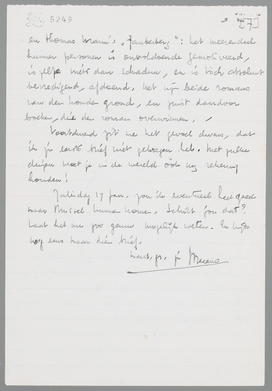 5249
en Thomas Mann's „Zauberberg": het meerendeel
hunner personen is onvoldoende gemotiveerd,
is zelfs niets dan schaduw, en is toch absoluut
bevredigend, afdoend. het zijn beide romans
van den honden grond, en juist daardoor
boeken, die de roman overwinnen.
Voortdurend zit me het gevoel dwars, dat
ik je eerste brief niet gekregen heb. Met zulke
dingen moet je in de wereld ook nog rekening
houden!
Zaterdag 17 Jan. zou ik eventueel heel goed
naar Brussel kunnen komen. Schikt jou dat?
Laat het me zoo gauw mogelijk weten. En krijg
nog eens naar dien brief.
Hart. gr. je Menno